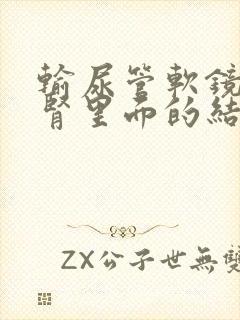 輸尿管軟鏡
腎里面的結
ZX公子世無雙